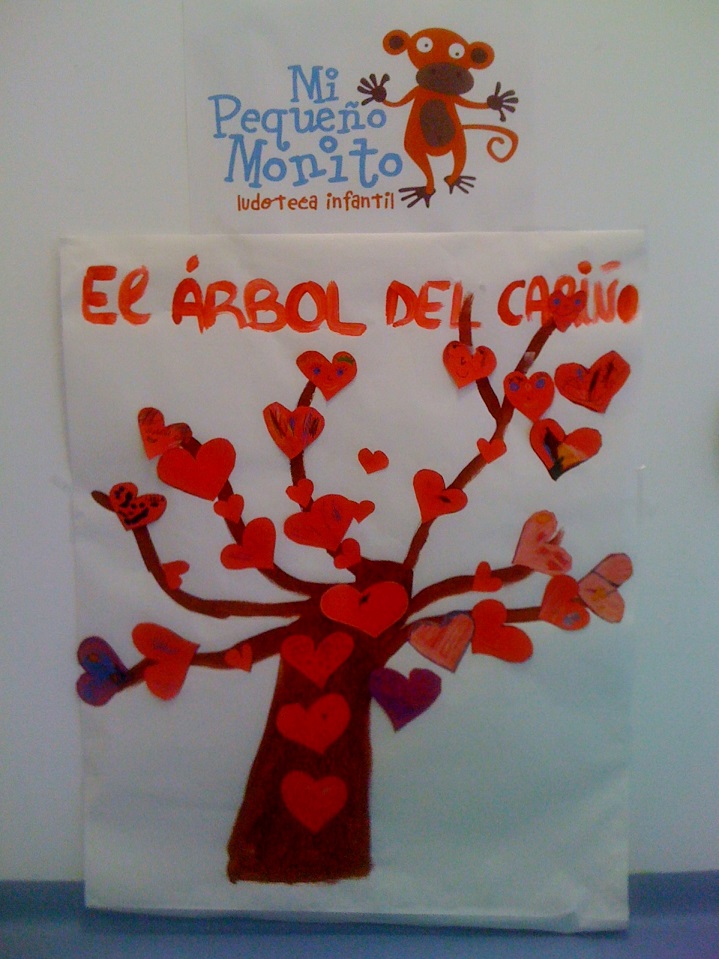 Mi
Pequeño
Monito
ludoteca infantil
El ÁRBOL DEL CARIÑO